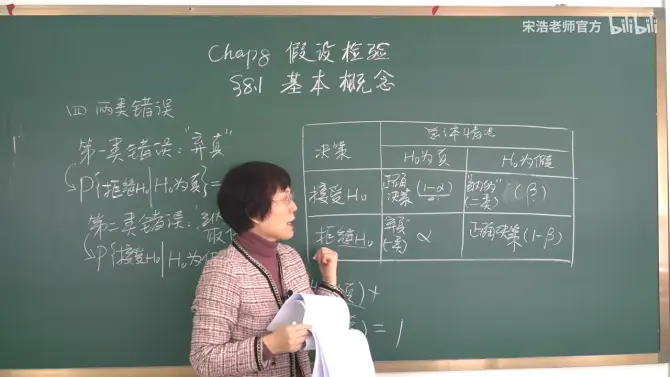 宋浩老师官方 bilibili
Chap8 假设检验
§8.1 基本概念
四 两类错误
第一类错误:"弃真"
P{拒绝H₀|H₀为真}=
第二类错误:
P{接受H₀|H₀为假
决策
总体情况
H₀为真
H₀为假
接受H₀
正确决策 (1-α)
(二类) (β)
拒绝H₀
"弃真" (一类) α
正确决策(1-β)
)+
)=1